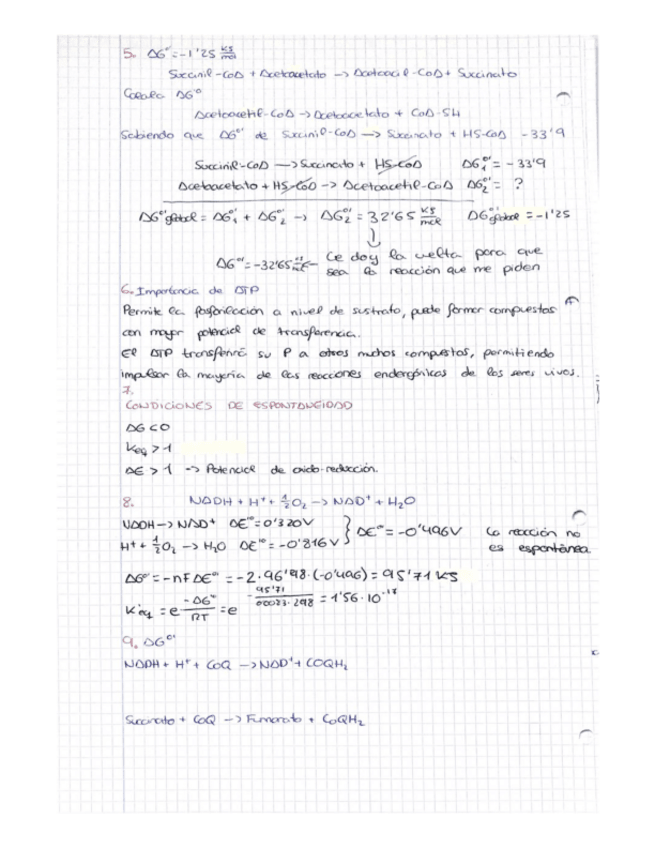 5. ΔG°'=-1'25 KJ/mol
Succinil-CoA + Acetoacetato -> Acetoacil-CoA + Succinato
Calcula ΔG°'
Acetoacetil-CoA -> Acetoacetato + CoA-SH
Sabiendo que ΔG°' de Succinil-CoA -> Succinato + HS-CoA -33'9
Succinil-CoA -> Succinato + HS-CoA ΔG°'1 = -33'9
Acetoacetato + HS-CoA -> Acetoacetil-CoA ΔG°'2 = ?
ΔG°'global = ΔG°'1 + ΔG°'2 -> ΔG°'2 = 32'65 KJ/mol ΔG°'global = -1'25
ΔG°' = -32'65 KJ/mol Le doy la vuelta para que
sea la reacción que me piden
6. Importancia de ATP
Permite la fosforilación a nivel de sustrato, puede formar compuestos
con mayor potencial de transferencia.
El ATP transferirá su P a otros muchos compuestos, permitiendo
impulsar la mayoría de las reacciones endergónicas de los seres vivos.
7.
CONDICIONES DE ESPONTANEIDAD
ΔG<0
Keq > 1
ΔE > 1 -> Potencial de oxido-reducción.
8. NADH + H+ + 1/2 O2 -> NAD+ + H2O
NADH -> NAD+ ΔE'° = 0'320V
H+ + 1/2 O2 -> H2O ΔE'° = -0'816V } ΔE'° = -0'496V La reacción no
es espontánea
ΔG°' = -nFΔE°' = -2·96'48·(-0'496) = 95'71 KJ
K'eq = e^(-ΔG°'/RT) = e^(-95'71/0'0023·298) = 1'56·10^-17
9. ΔG°'
NADH + H+ + CoQ -> NAD+ + COQH2
Succinato + CoQ -> Fumarato + CoQH2